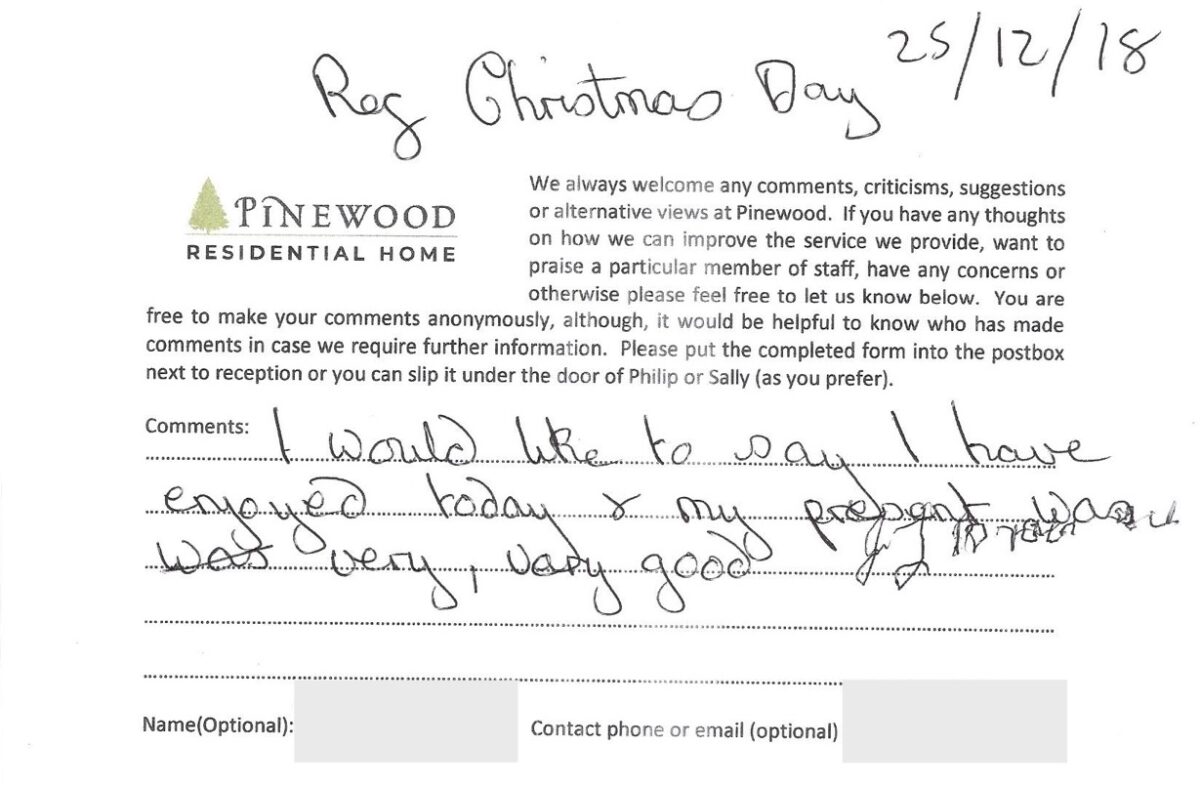 25/12/18
Reg Christmas Day
PINEWOOD
RESIDENTIAL HOME
We always welcome any comments, criticisms, suggestions
or alternative views at Pinewood. If you have any thoughts
on how we can improve the service we provide, want to
praise a particular member of staff, have any concerns or
otherwise please feel free to let us know below. You are
free to make your comments anonymously, although, it would be helpful to know who has made
comments in case we require further information. Please put the completed form into the postbox
next to reception or you can slip it under the door of Philip or Sally (as you prefer).
Comments: I would like to say I have
enjoyed today & my present was
was very, very good
Name(Optional):
Contact phone or email (optional)